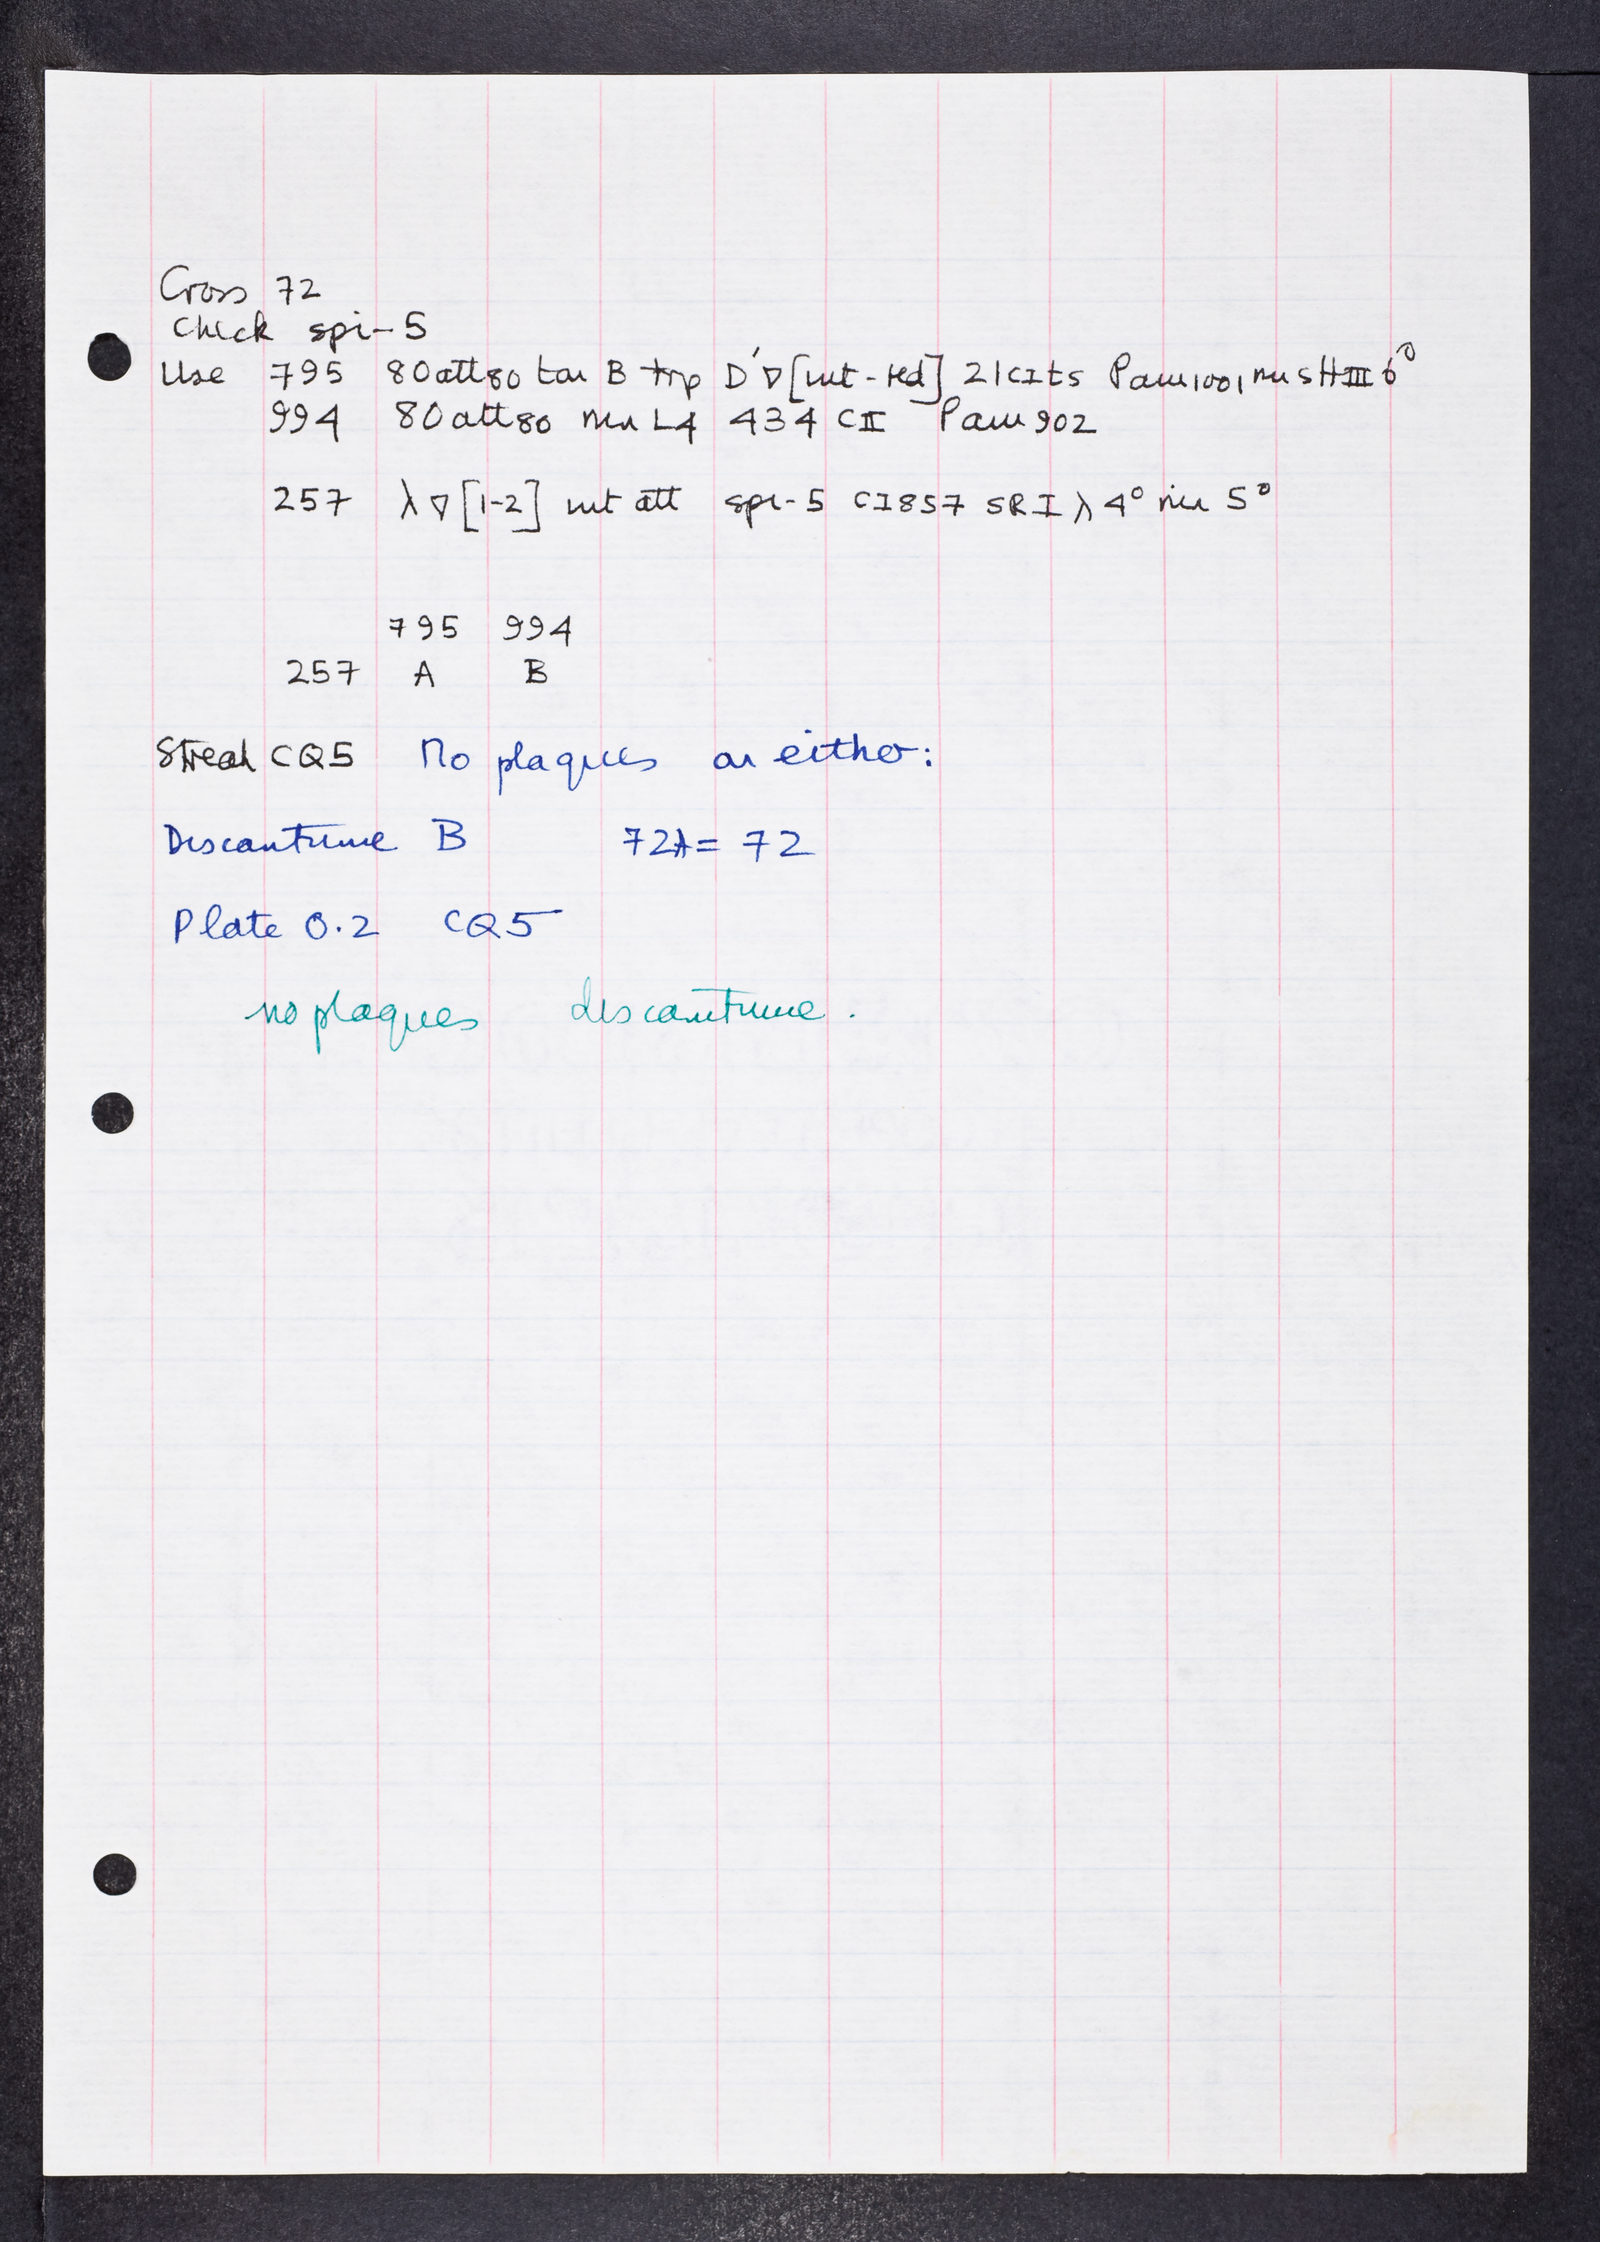 Cross 72
Check spi-5
Use 795 80att80 ton B trp D'∇[int-red] 21 CI ts Pam1001, nin SHIII 6°
994 80att80 nin L4 434 CII Pam902
257 λ∇[1-2] int att spi-5 CI857 SRIλ4° nin 5°
795 994
257 A B
Streak CQ5 No plaques on either:
Discontinue B 72A = 72
Plate 0.2 CQ5
no plaques discontinue.